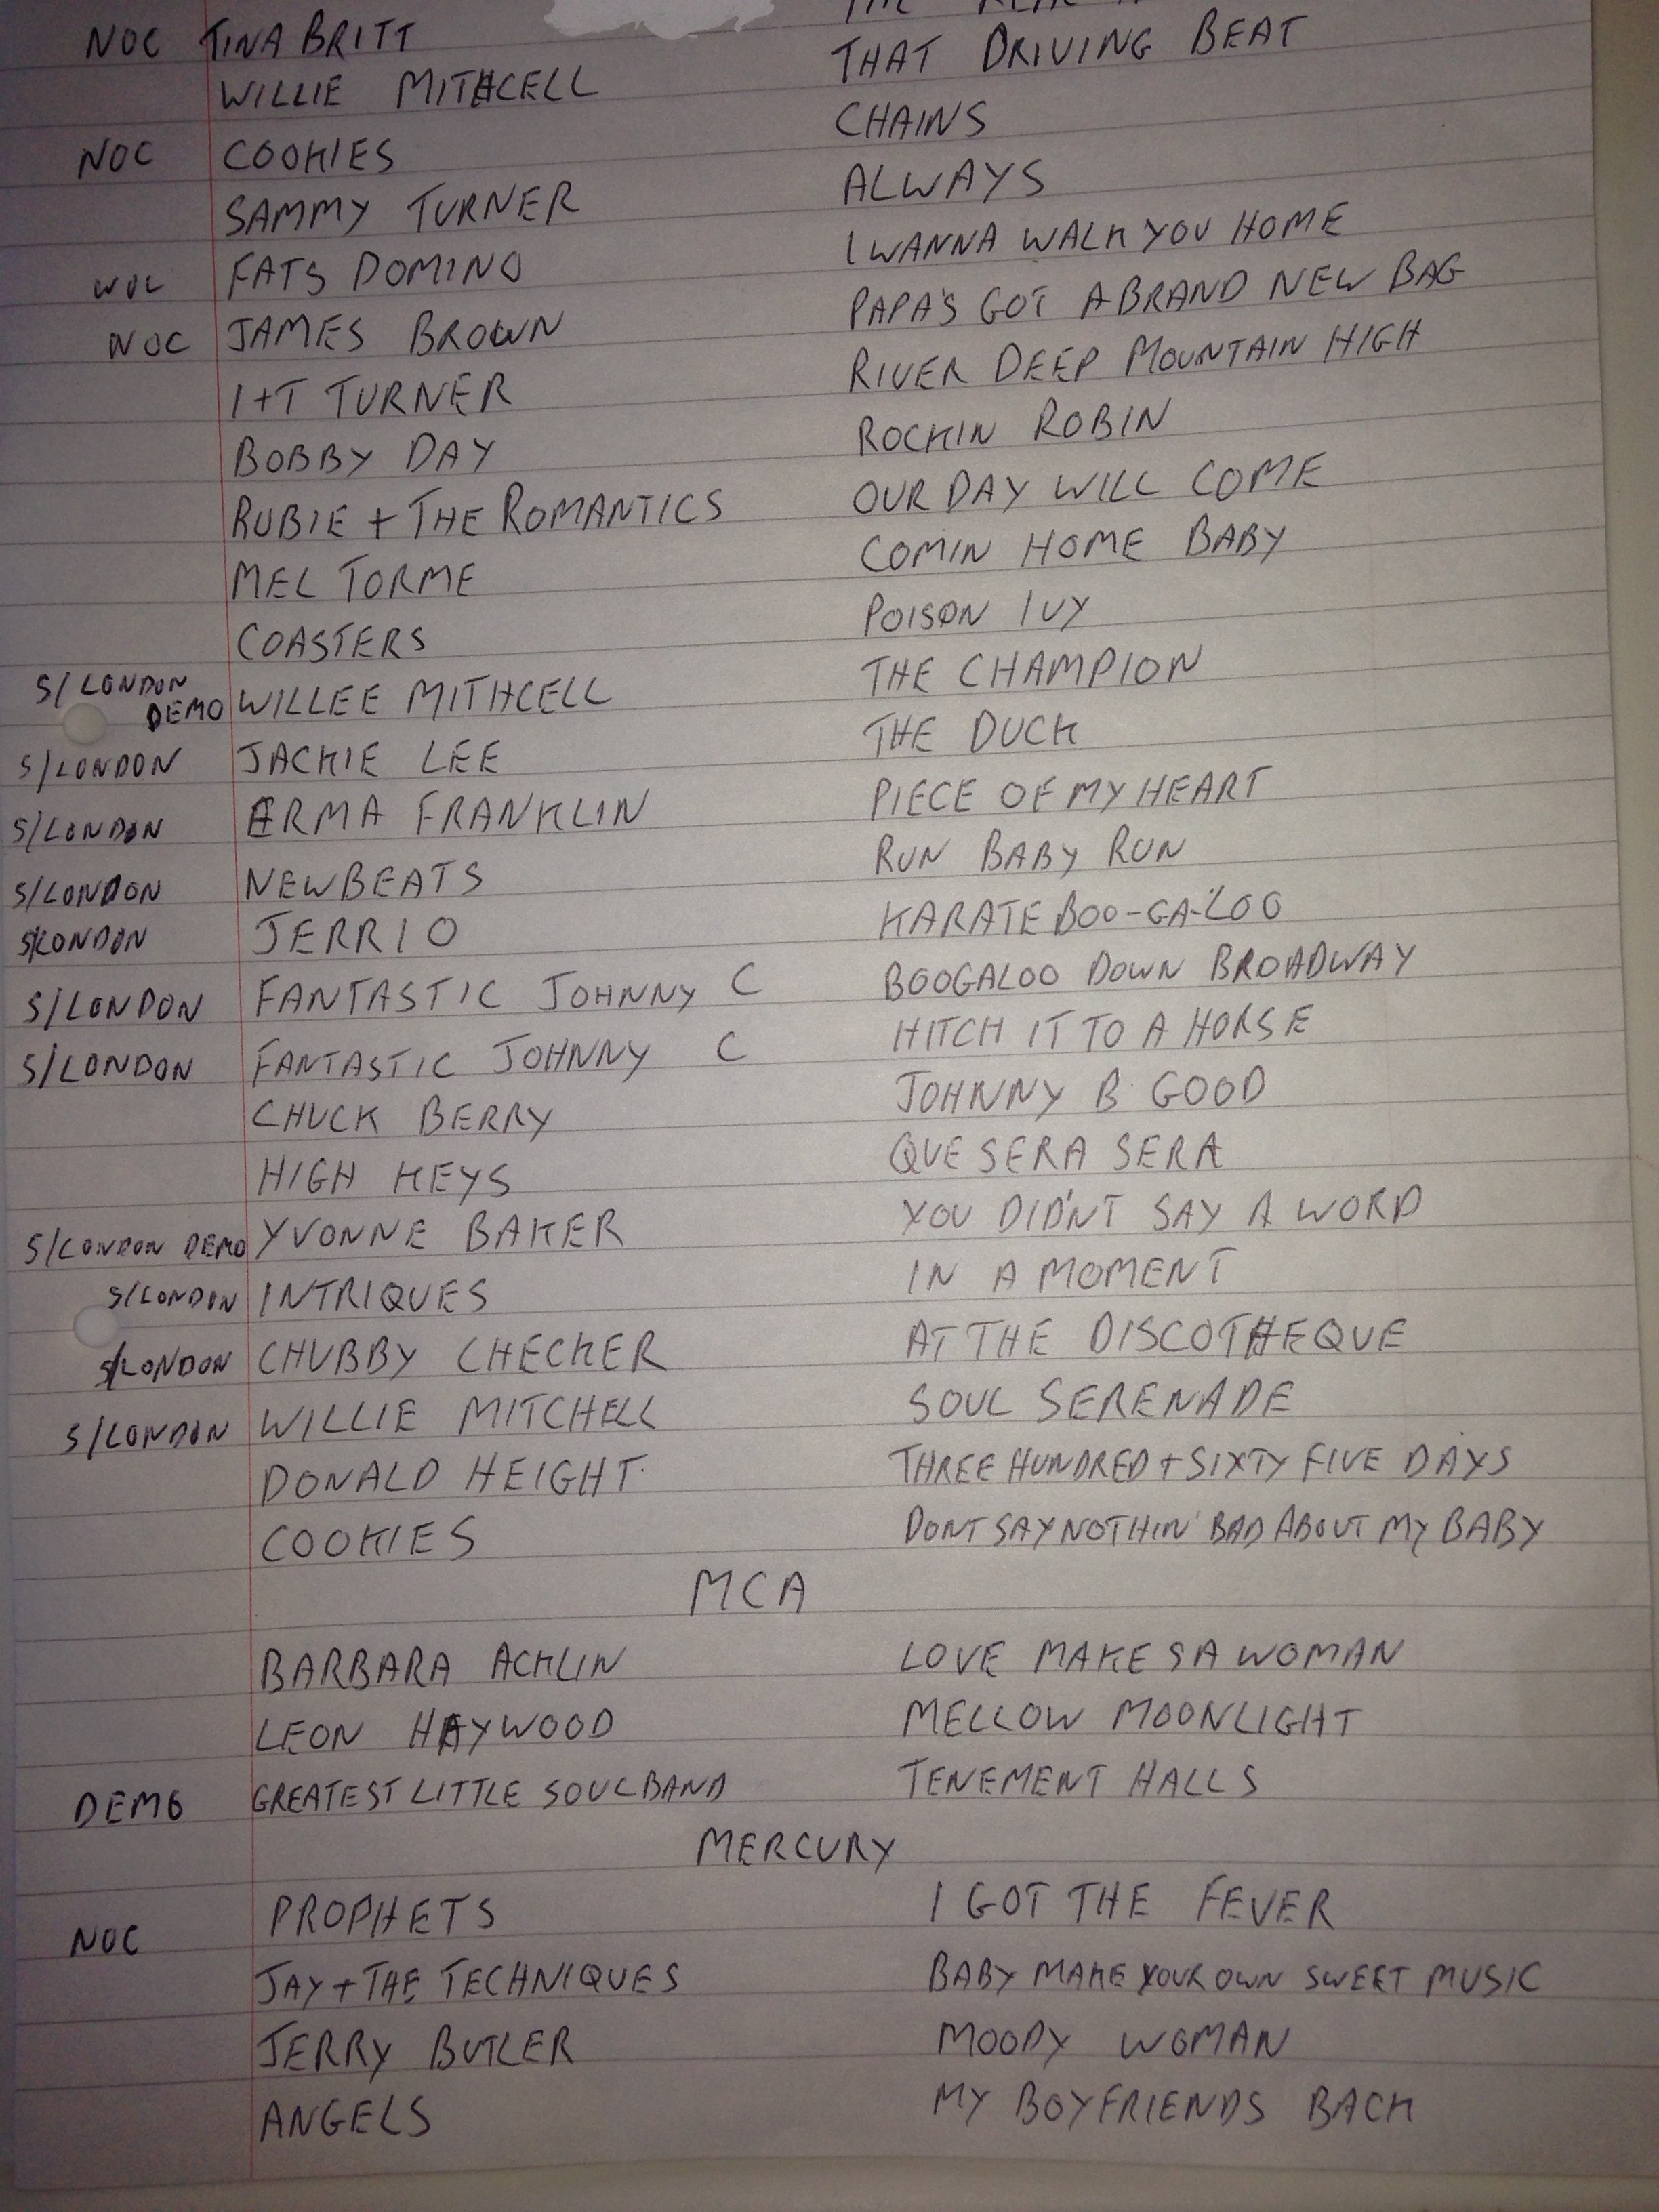 NOC TINA BRITT
WILLIE MITHCELL THAT DRIVING BEAT
NOC COOKIES CHAINS
SAMMY TURNER ALWAYS
NOC FATS DOMINO I WANNA WALK YOU HOME
NOC JAMES BROWN PAPA'S GOT A BRAND NEW BAG
I+T TURNER RIVER DEEP MOUNTAIN HIGH
BOBBY DAY ROCKIN ROBIN
RUBIE + THE ROMANTICS OUR DAY WILL COME
MEL TORME COMIN HOME BABY
COASTERS POISON IVY
S/LONDON DEMO WILLEE MITHCELL THE CHAMPION
S/LONDON JACKIE LEE THE DUCK
S/LONDON ERMA FRANKLIN PIECE OF MY HEART
S/LONDON NEWBEATS RUN BABY RUN
S/LONDON JERRIO KARATE BOO-GA-LOO
S/LONDON FANTASTIC JOHNNY C BOOGALOO DOWN BROADWAY
S/LONDON FANTASTIC JOHNNY C HITCH IT TO A HORSE
CHUCK BERRY JOHNNY B GOOD
HIGH KEYS QUE SERA SERA
S/LONDON DEMO YVONNE BAKER YOU DIDN'T SAY A WORD
S/LONDON INTRIQUES IN A MOMENT
S/LONDON CHUBBY CHECKER AT THE DISCOTHEQUE
S/LONDON WILLIE MITCHELL SOUL SERENADE
DONALD HEIGHT THREE HUNDRED + SIXTY FIVE DAYS
COOKIES DONT SAY NOTHIN' BAD ABOUT MY BABY
MCA
BARBARA ACKLIN LOVE MAKES A WOMAN
LEON HAYWOOD MELLOW MOONLIGHT
DEMO GREATEST LITTLE SOUL BAND TENEMENT HALLS
MERCURY
NOC PROPHETS I GOT THE FEVER
JAY + THE TECHNIQUES BABY MAKE YOUR OWN SWEET MUSIC
JERRY BUTLER MOODY WOMAN
ANGELS MY BOYFRIENDS BACK